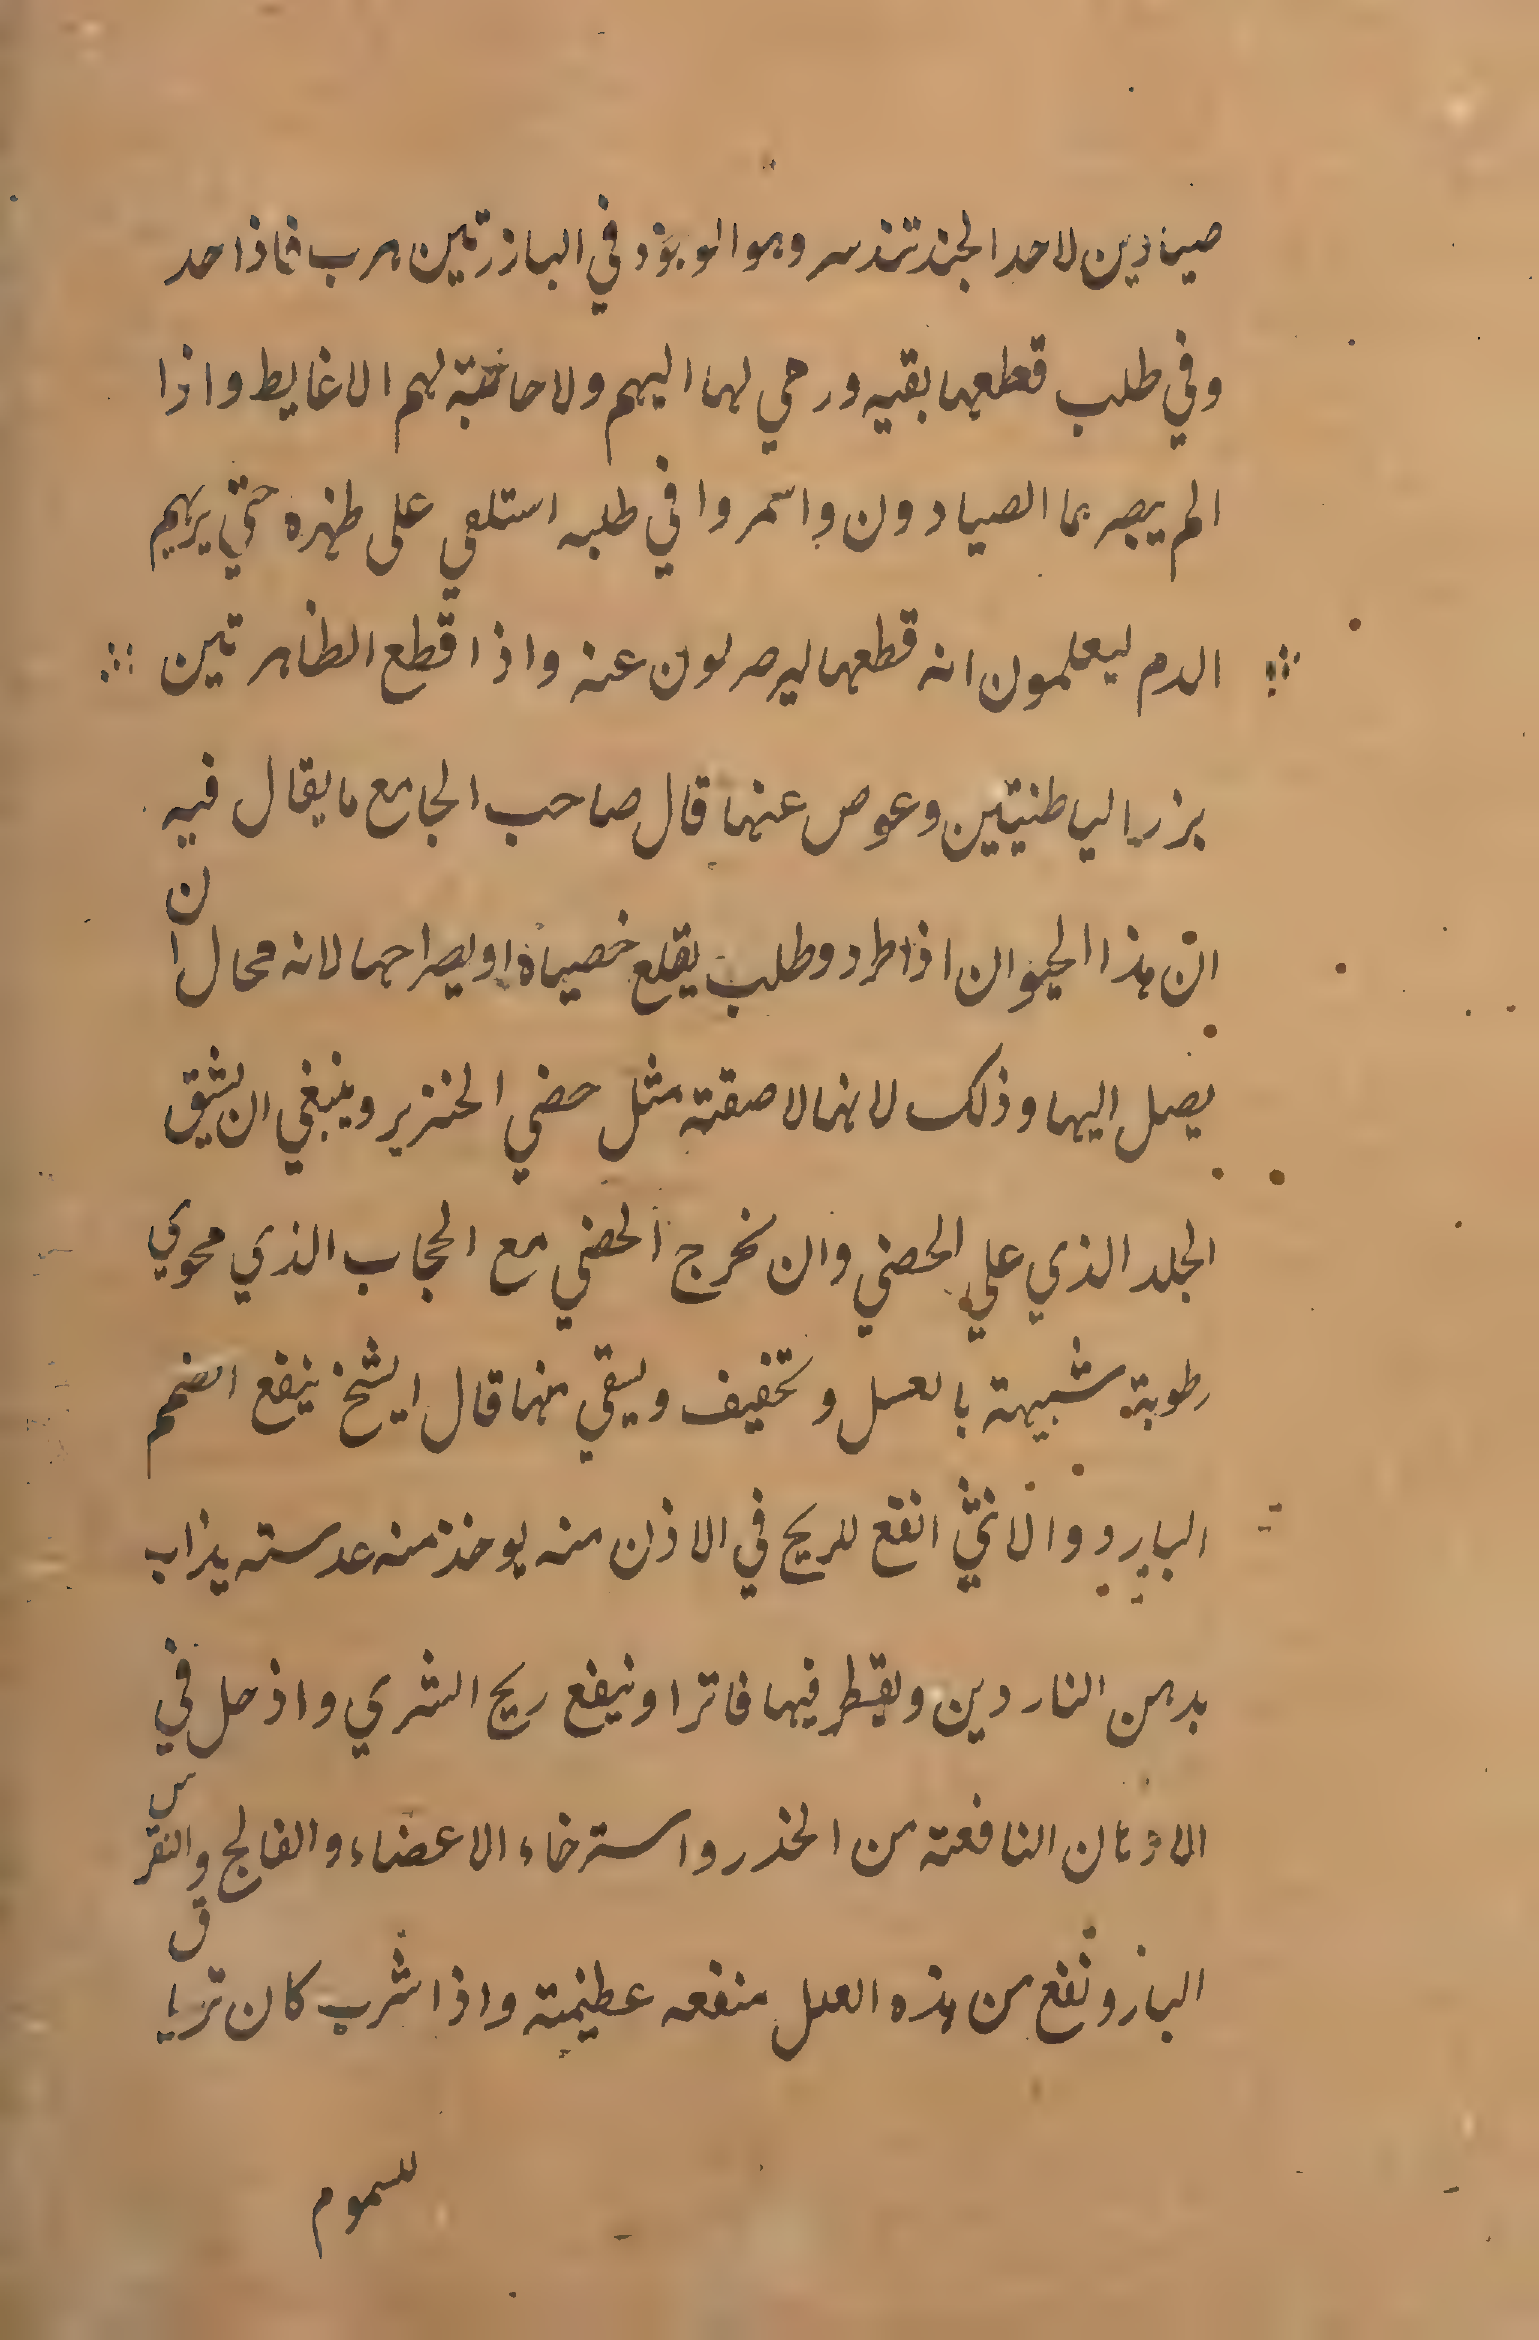 صيادين لاحد الجند تندسر وهو الموبؤد في البازرتين هرب فماذا حد
وفي طلب قطعها بقيه ورحي لهما اليهم ولا حاجة لهم الا غايط واذا
الم يبصر بما الصيادون واسمروا في طلبه استلقي على ظهره حتي يريهم
الدم ليعلمون انه قطعها ليرصرلون عنه واذا قطع الظاهرتين
برزرا لياطنيتين وعوص عنها قال صاحب الجامع ما يقال فيه
انّ هذا الحيوان اذا طرد وطلب يقلع خصياه اويصراحها لانه محال ان
يصل اليها وذلك لانها لاصقته مثل حضي الخنزير وينبغي ان يشق
الجلد الذي علي الحصني وان نخرج الحضي مع الحجاب الذي محوي
رطوبة شبيهة بالعسل وتخفيف ويسقي منها قال ايشخ ينفع الضمم
البارد والانثي انفع للريح في الاذن منه يوخذ منه عدسته يذاب
بدهن الناردين ويقطر فيها فاترا وينفع ريح الشري واذ حل في
الادهان النافعته من الخدر واسترخاء الاعضاء والفالج والنقرس
البارد ونفع من هذه العلل منفعه عظيمته واذا شرب كان ترياق
للسموم